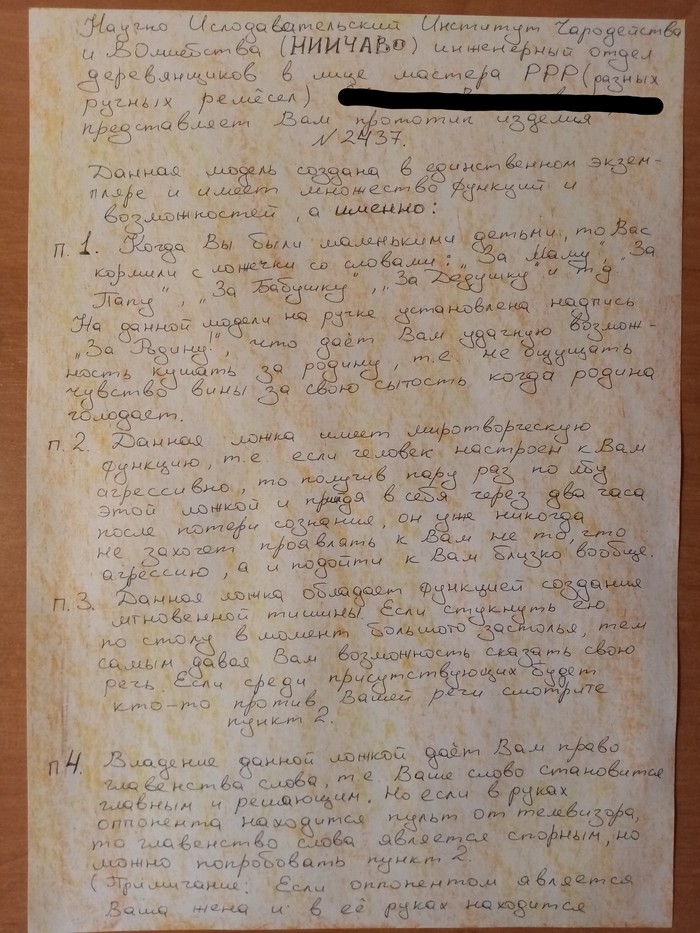 Научно Исподавательский Институт Чародейства
и Волшебства (НИИЧАВО) инженерный отдел
деревянщиков в лице мастера РРР (разных
ручных ремёсел)
представляет Вам прототип изделия
№ 2437.
Данная модель создана в единственном экзем-
пляре и имеет множество функций и
возможностей, а именно:
п. 1. Когда Вы были маленькими детьми, то Вас
кормили с ложечки со словами: „За Маму“, „За
Папу“, „За Бабушку“, „За Дедушку“ и т.д.
На данной модели на ручке установлена надпись
„За Рдину!“, что даёт Вам удачную возмож-
ность кушать за родину, т.е. не ощущать
чувство вины за свою сытость когда родина
голодает.
п. 2. Данная ложка имеет миротворческую
функцию, т.е если человек настроен к Вам
агрессивно, то получив пару раз по лбу
этой ложкой и придя в себя через два часа
после потери сознания, он уже никогда
не захочет проявлать к Вам не то, что
агрессию, а и подойти к Вам близко вообще.
п. 3. Данная ложка обладает функцией создания
мгновенной тишины. Если стукнуть ею
по столу в момент большого застолья, тем
самым давая Вам возможность сказать свою
речь. Если среди присутствующих будет
кто-то против Вашей речи смотрите
пункт 2.
п 4. Владение данной ложкой даёт Вам право
главенства слова, т.е. Ваше слово становится
главным и решающим. Но если в руках
оппонента находится пульт от телевизора,
то главенство слова является спорным, но
можно попробовать пункт 2.
(Примичание: Если оппонентом является
Ваша жена и в её руках находится